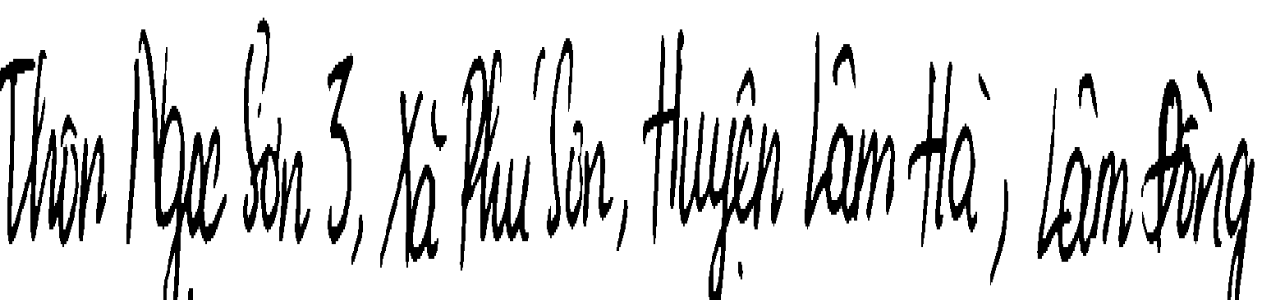 Thôn Ngọc Sơn 3, Xã Phú Sơn, Huyện Lâm Hà, Lâm Đồng